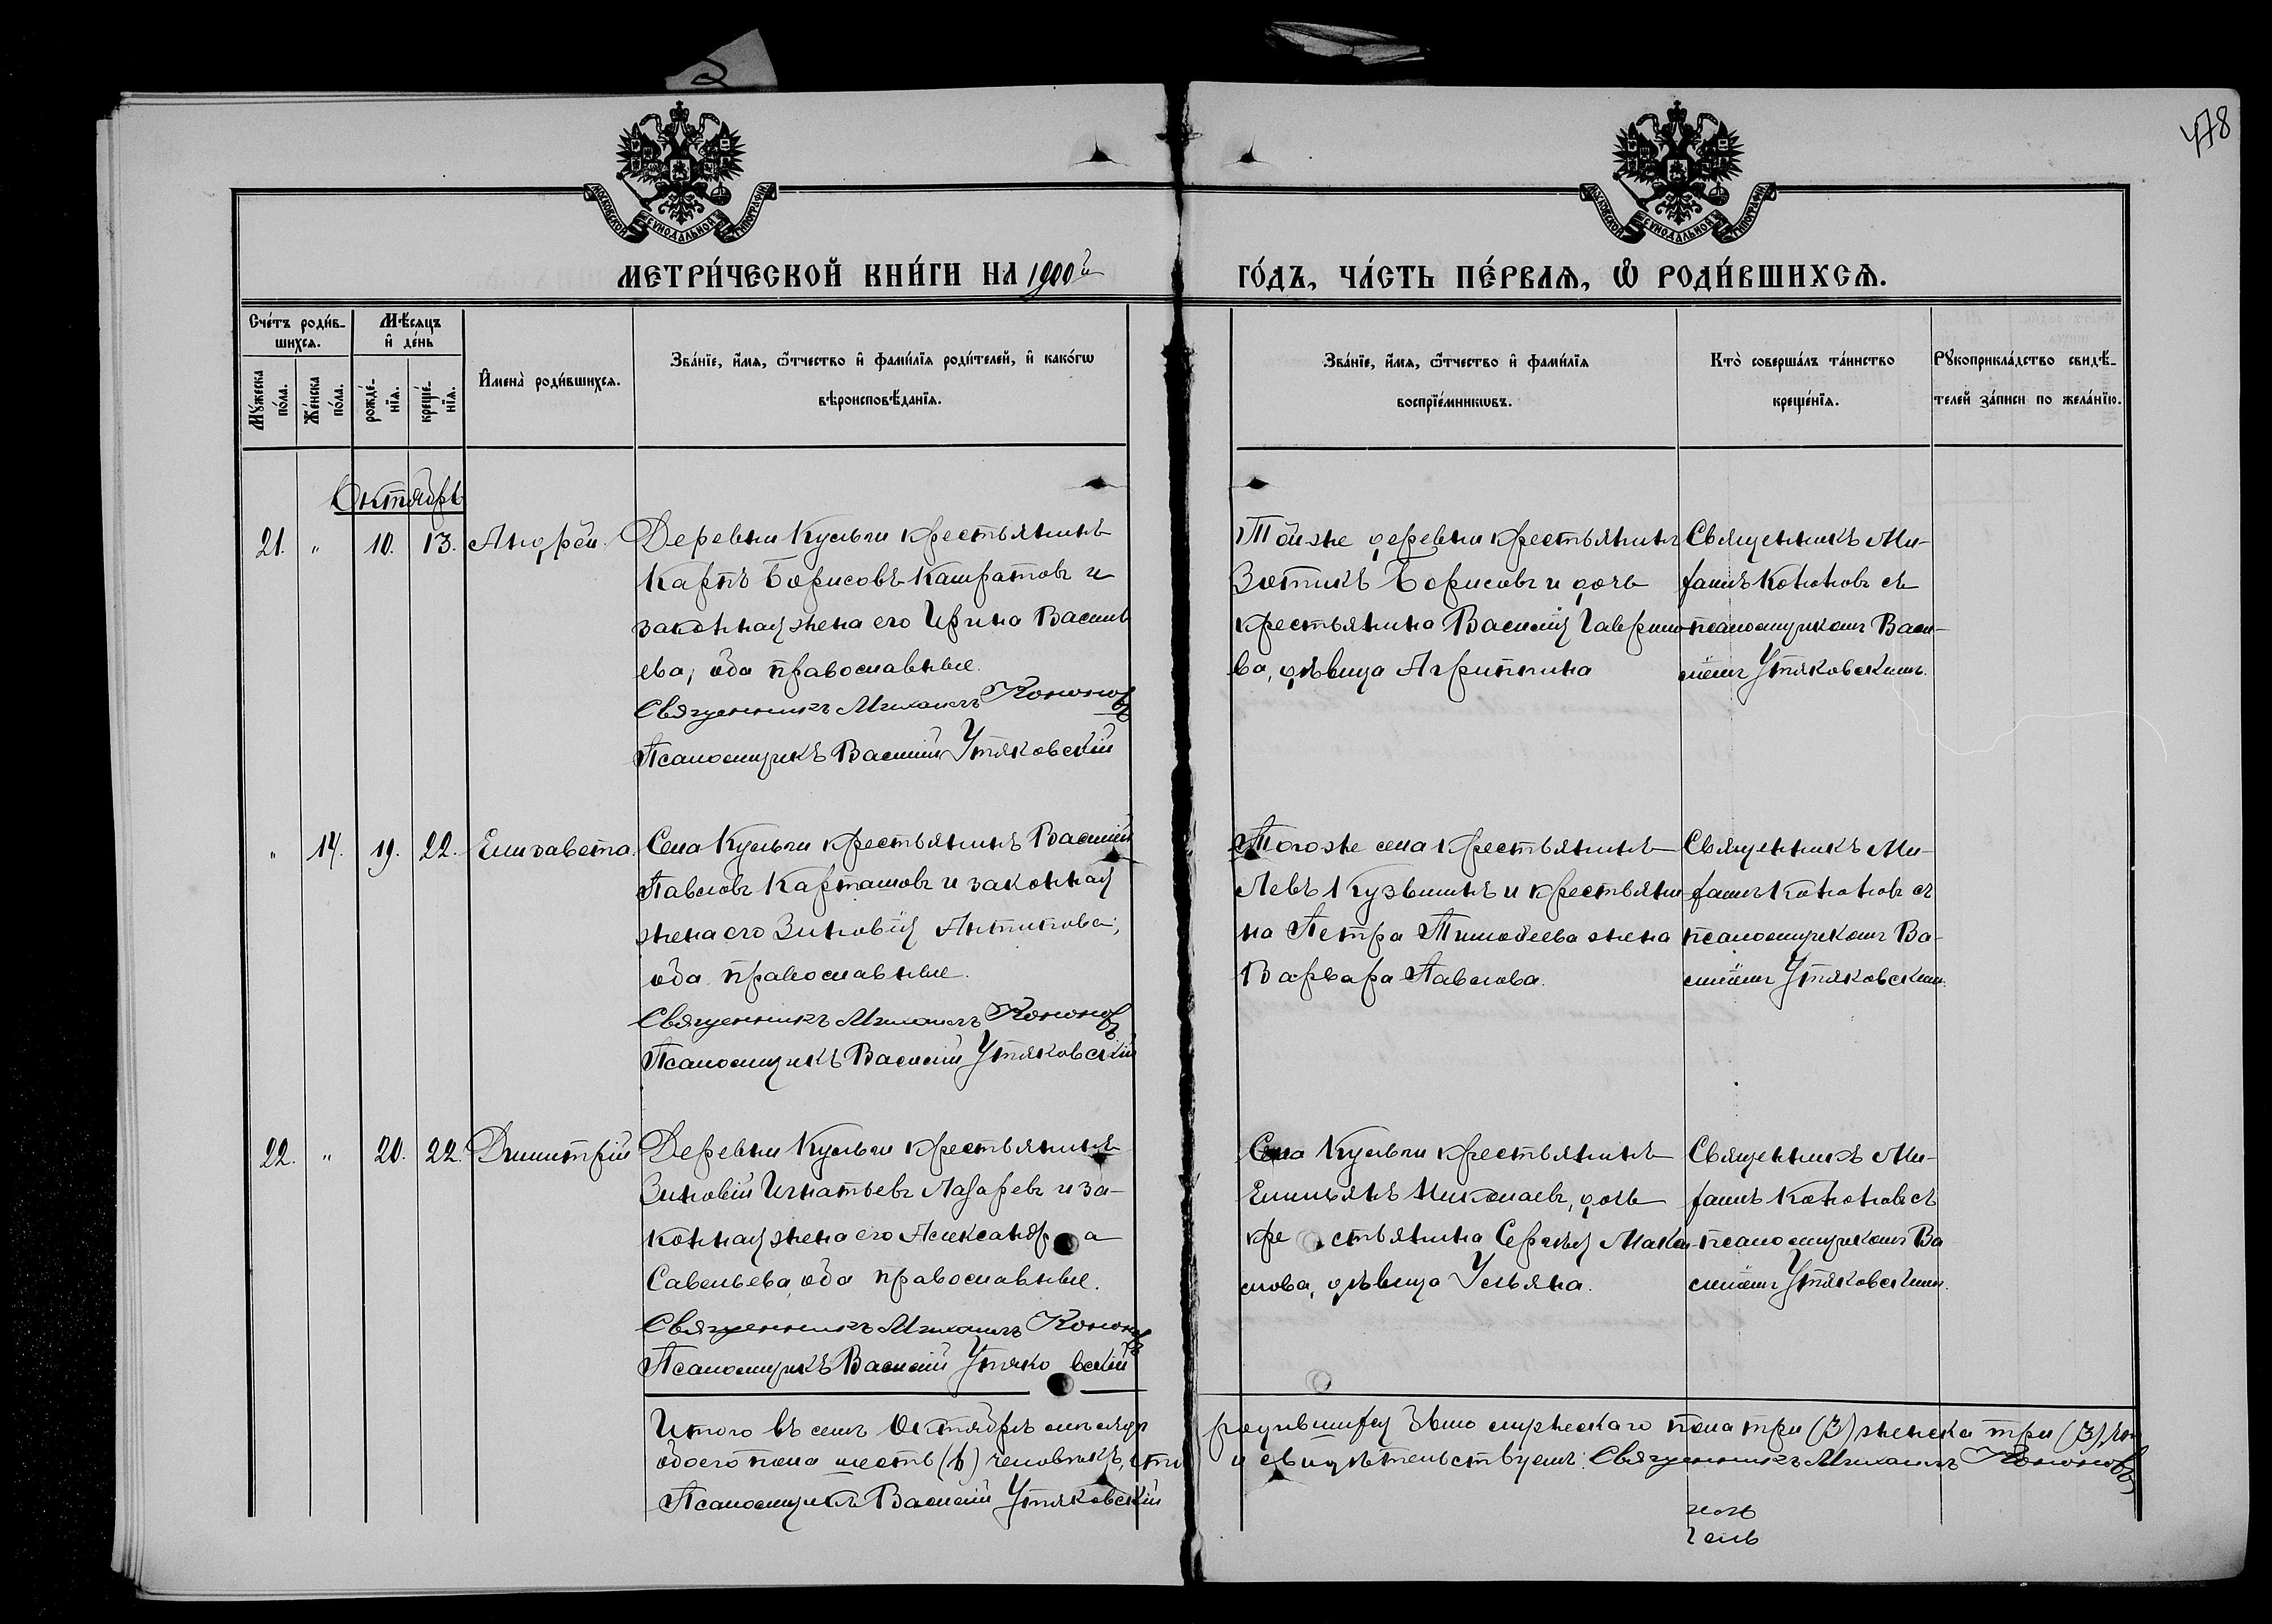 478
МОСКОВСКОЙ СѴНОДАЛЬНОЙ ТИПОГРАФІИ
МОСКОВСКОЙ СѴНОДАЛЬНОЙ ТИПОГРАФІИ
МЕТРИ́ЧЕСКОЙ КНИ́ГИ НА 1900й ГО́ДЪ, ЧА́СТЬ ПЕ́РВАѦ, Ѽ РОДИ́ВШИХСѦ.
Сче́тъ роди́в-
шихсѧ.
Мꙋ́жеска
по́ла.
Же́нска
по́ла.
Мѣ́сѧцъ
и҆ де́нь
рожде́-
нїѧ.
креще́-
нїѧ.
И҆мена̀ роди́вшихсѧ.
Зва́нїе, и҆́мѧ, ѻ҆́тчество и҆ фами́лїѧ роди́телей, и҆ како́гѡ
вѣроисповѣ́данїѧ.
Зва́нїе, и҆́мѧ, ѻ҆́тчество и҆ фами́лїѧ
воспрїе́мникѡвъ.
Кто̀ соверша́лъ та́инство
креще́нїѧ.
Рꙋкоприкла́дство свидѣ́-
телей за́писи по жела́нїю.
Октябрь
21. " 10. 13. Андрей.
Деревни Кульги крестьянинъ
Карпъ Борисовъ Кашратовъ и
законная жена его Ирина Василь
ева, оба православные.
Священникъ Михаилъ Кононовъ
Псаломщикъ Василий Утяковскій
Тойже деревни крестьянинъ
Зотикъ Борисовъ и дочь
крестьянина Василія Гаврило-
ва, дѣвица Агриппина
Священникъ Ми-
хаилъ Кононовъ съ
псаломщикомъ Васи-
ліемъ Утяковскимъ.
" 14. 19. 22. Елизавета.
Села Кульги крестьянинъ Василій
Павловъ Карташовъ и законная
жена его Зиновія Антипова;
оба православные.
Священникъ Михаилъ Кононовъ
Псаломщикъ Василій Утяковскій
Тогоже села крестьянинъ
Левъ Кузьминъ и крестьяни
на Петра Тимофеева жена
Варвара Павлова.
Священникъ Ми-
хаилъ Кононовъ съ
псаломщикомъ Ва-
силіемъ Утяковскимъ.
22. " 20. 22. Димитрій
Деревни Кульги крестьянинъ
Зиновій Игнатьевъ Лазаревъ и за-
конная жена его Александра
Савельева, оба православные.
Священникъ Михаилъ Кононовъ
Псаломщикъ Василій Утяковскій
Села Кульги крестьянинъ
Емильянъ Николаевъ, дочь
крестьянина Сергѣя Мака-
лова, дѣвица Ульяна.
Священникъ Ми-
хаилъ Кононовъ съ
псаломщикомъ Ва
силіемъ Утяковскимъ.
Итого въ семъ Октябрѣ мѣсяцѣ родившихся было мужескаго пола три (3) женска три (3),
обоего пола шесть (6) человѣкъ, и свидѣтельствуемъ: Священникъ Михаилъ Кононовъ
Псаломщикъ Василій Утяковскій